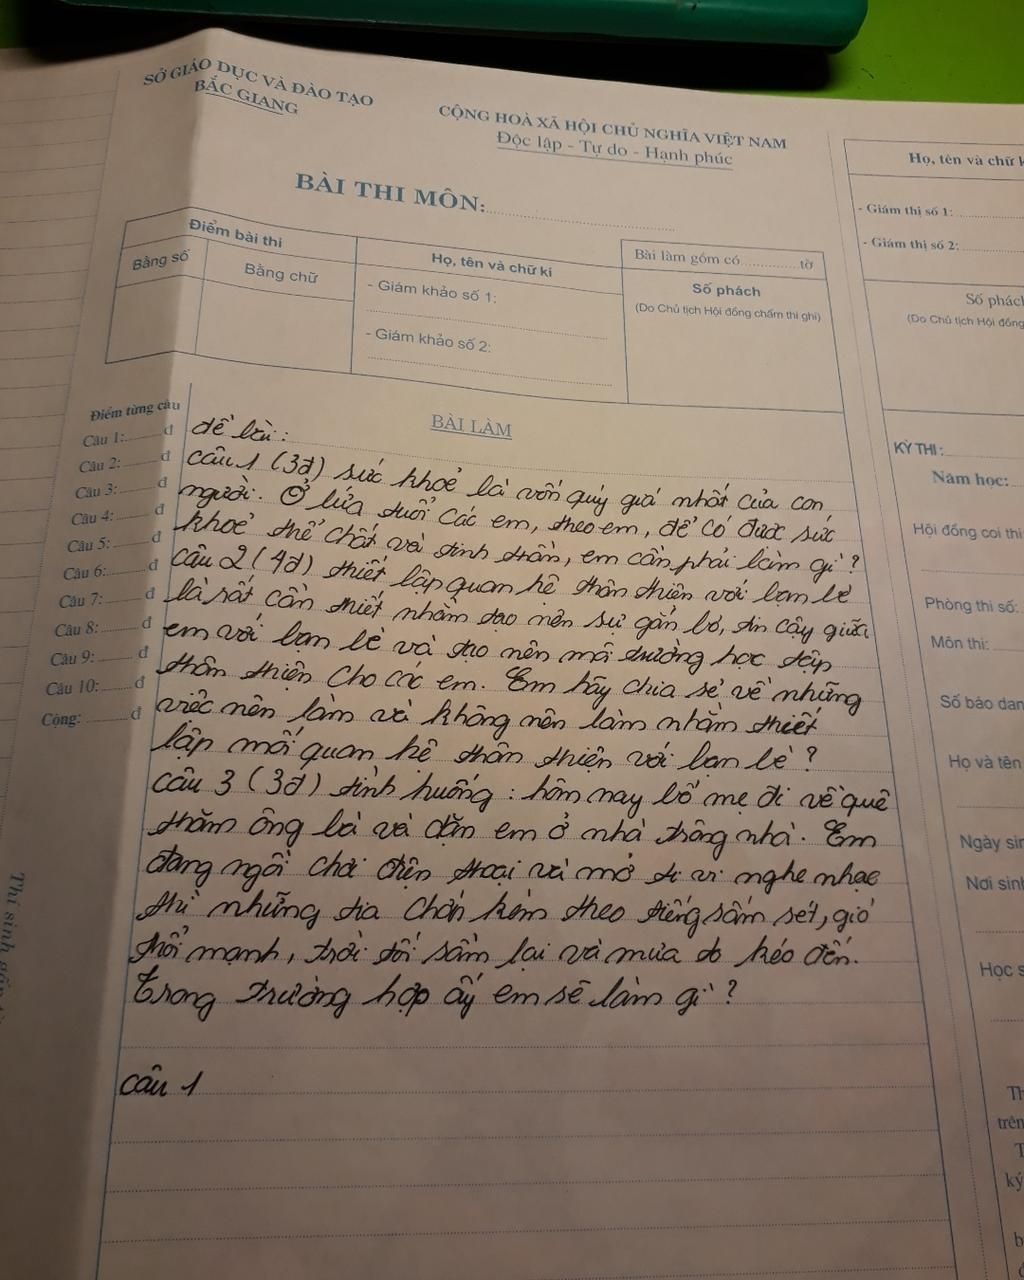 SỞ GIÁO DỤC VÀ ĐÀO TẠO
BẮC GIANG
CỘNG HOÀ XÃ HỘI CHỦ NGHĨA VIỆT NAM
Độc lập - Tự do - Hạnh phúc
BÀI THI MÔN:
Điểm bài thi
Bằng số
Bằng chữ
Họ, tên và chữ kí
- Giám khảo số 1:
- Giám khảo số 2:
Bài làm gồm có.............tờ
Số phách
(Do Chủ tịch Hội đồng chấm thi ghi)
Điểm từng câu
Câu 1:........đ
Câu 2:........đ
Câu 3:........đ
Câu 4:........đ
Câu 5:........đ
Câu 6:........đ
Câu 7:........đ
Câu 8:........đ
Câu 9:........đ
Câu 10:........đ
Cộng:........đ
BÀI LÀM
đề bài:
câu 1 (3đ) sức khoẻ là vốn quý giá nhất của con
người. Ở lứa tuổi các em, theo em, để có được sức
khoẻ thể chất và tinh thần, em cần phải làm gì?
câu 2 (4đ) thiết lập quan hệ thân thiện với bạn bè
là rất cần thiết nhằm tạo nên sự gắn bó, tin cậy giữa
em với bạn bè và tạo nên môi trường học tập
thân thiện cho các em. Em hãy chia sẻ về những
việc nên làm và không nên làm nhằm thiết
lập mối quan hệ thân thiện với bạn bè?
câu 3 (3đ) tình huống: hôm nay bố mẹ đi về quê
thăm ông bà và dặn em ở nhà trông nhà. Em
đang ngồi chơi điện thoại và mở ti vi nghe nhạc
thì những tia chớp kèm theo tiếng sấm sét, gió
thổi mạnh, trời tối sầm lại và mưa to kéo đến.
Trong trường hợp ấy em sẽ làm gì?
câu 1
Họ, tên và chữ
- Giám thị số 1:
- Giám thị số 2:
Số phách
(Do Chủ tịch Hội đồng
KỲ THI:
Năm học:
Hội đồng coi thi
Phòng thi số:
Môn thi:
Số báo danh
Họ và tên
Ngày
Nơi sinh
Học
trên
ký
Thí sinh